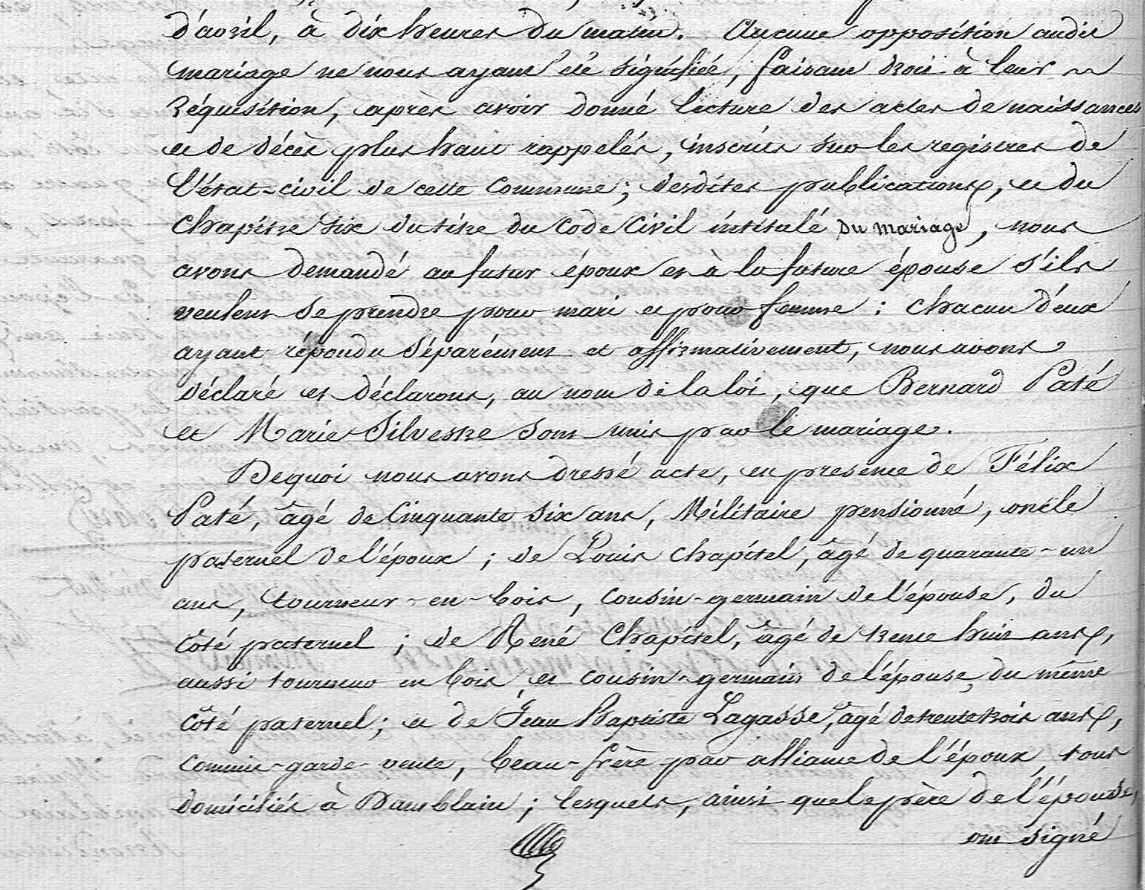 d'avril, à dix heures du matin. Aucune opposition audit
mariage ne nous ayant été signifiée, faisant droit à leur
réquisition, après avoir donné lecture des actes de naissances
et de décès plus haut rappelés, inscrits sur les registres de
l'état-civil de cette Commune ; desdites publications, et du
Chapitre Six du titre du Code Civil intitulé Du mariage, nous
avons demandé au futur époux et à la future épouse s'ils
veulent se prendre pour mari et pour femme : Chacun d'eux
ayant répondu séparément et affirmativement, nous avons
déclaré et déclarons, au nom de la loi, que Bernard Paté
et Marie Silvestre sont unis par le mariage.
De quoi nous avons dressé acte, en présence de Félix
Paté, âgé de Cinquante six ans, Militaire pensionné, oncle
paternel de l'époux ; de Louis Chapitel, âgé de quarante-un
ans, tourneur-en-bois, cousin-germain de l'épouse, du
côté paternel ; de René Chapitel, âgé de trente huit ans,
aussi tourneur en bois et cousin-germain de l'épouse du même
côté paternel ; et de Jean Baptiste Lagasse, âgé de trente trois ans,
Commis-garde-vente, beau-frère par alliance de l'époux, tous
domiciliés à Damblain ; lesquels, ainsi que le père de l'épouse,
ont signé